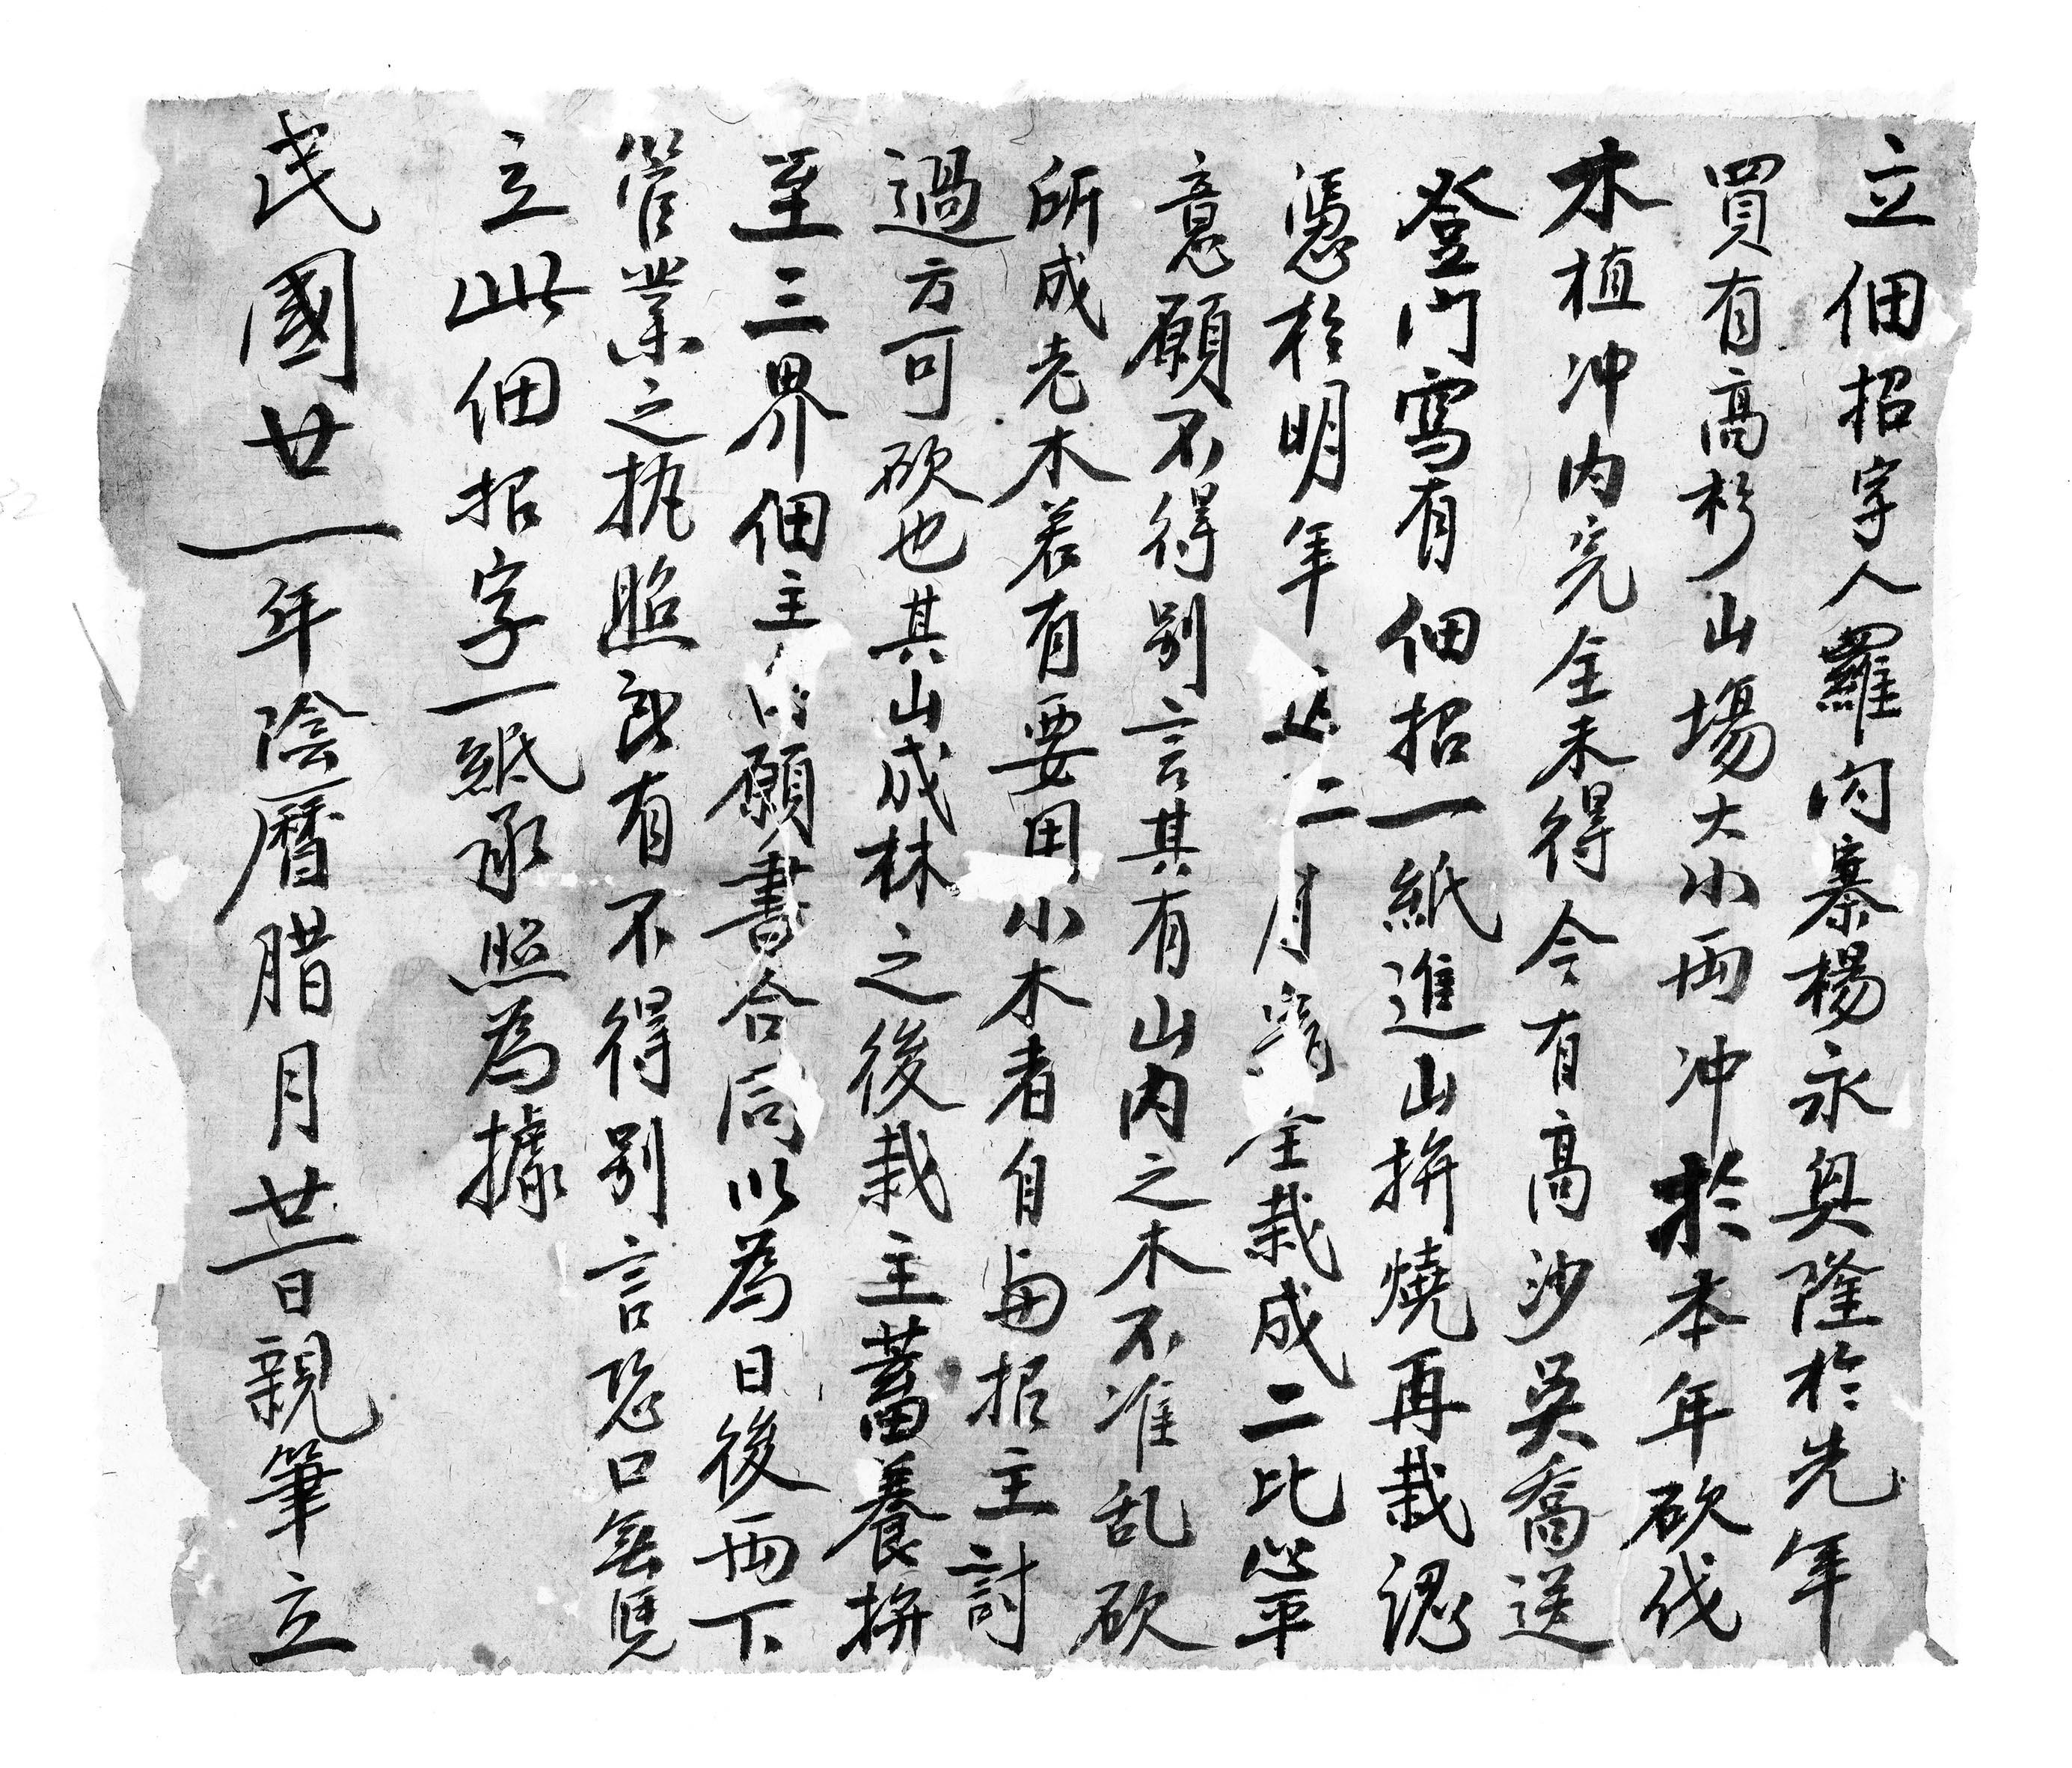 立佃招字人羅內寨楊永興隆於先年
買有高杉山塲大小両冲於本年砍伐
木植冲内完全未得今有高沙吳喬送
登门寫有佃招一紙進山拚燒再栽認
憑於明年二月全栽成二比心平
意願不得别言其有山内之木不准乱砍
所成老木若有要用小木者自與招主討
過方可砍也其山成林之後栽主蓄養拚
至三界佃主願書合同以為日後両下
管業之执照茲有不得别言恐口無凭
立此佃招字一紙承照為據
民國廿一年陰曆腊月廿一日親筆立